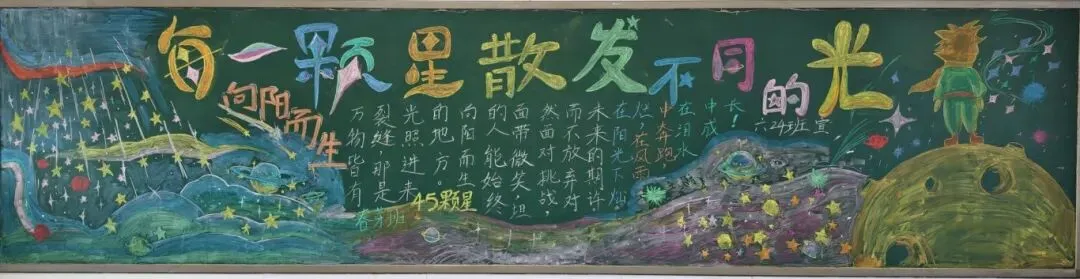 每一颗里散发不同的光
向阳而生
万物皆有
裂缝那是
光照进来
的地方。
向阳而生
的人能始终
面带微笑,坦
然面对挑战,
而不放弃对
未来的期许
在阳光下灿
烂,在风雨
中奔跑
在泪水
中成
长!
六24班 宣
45颗星